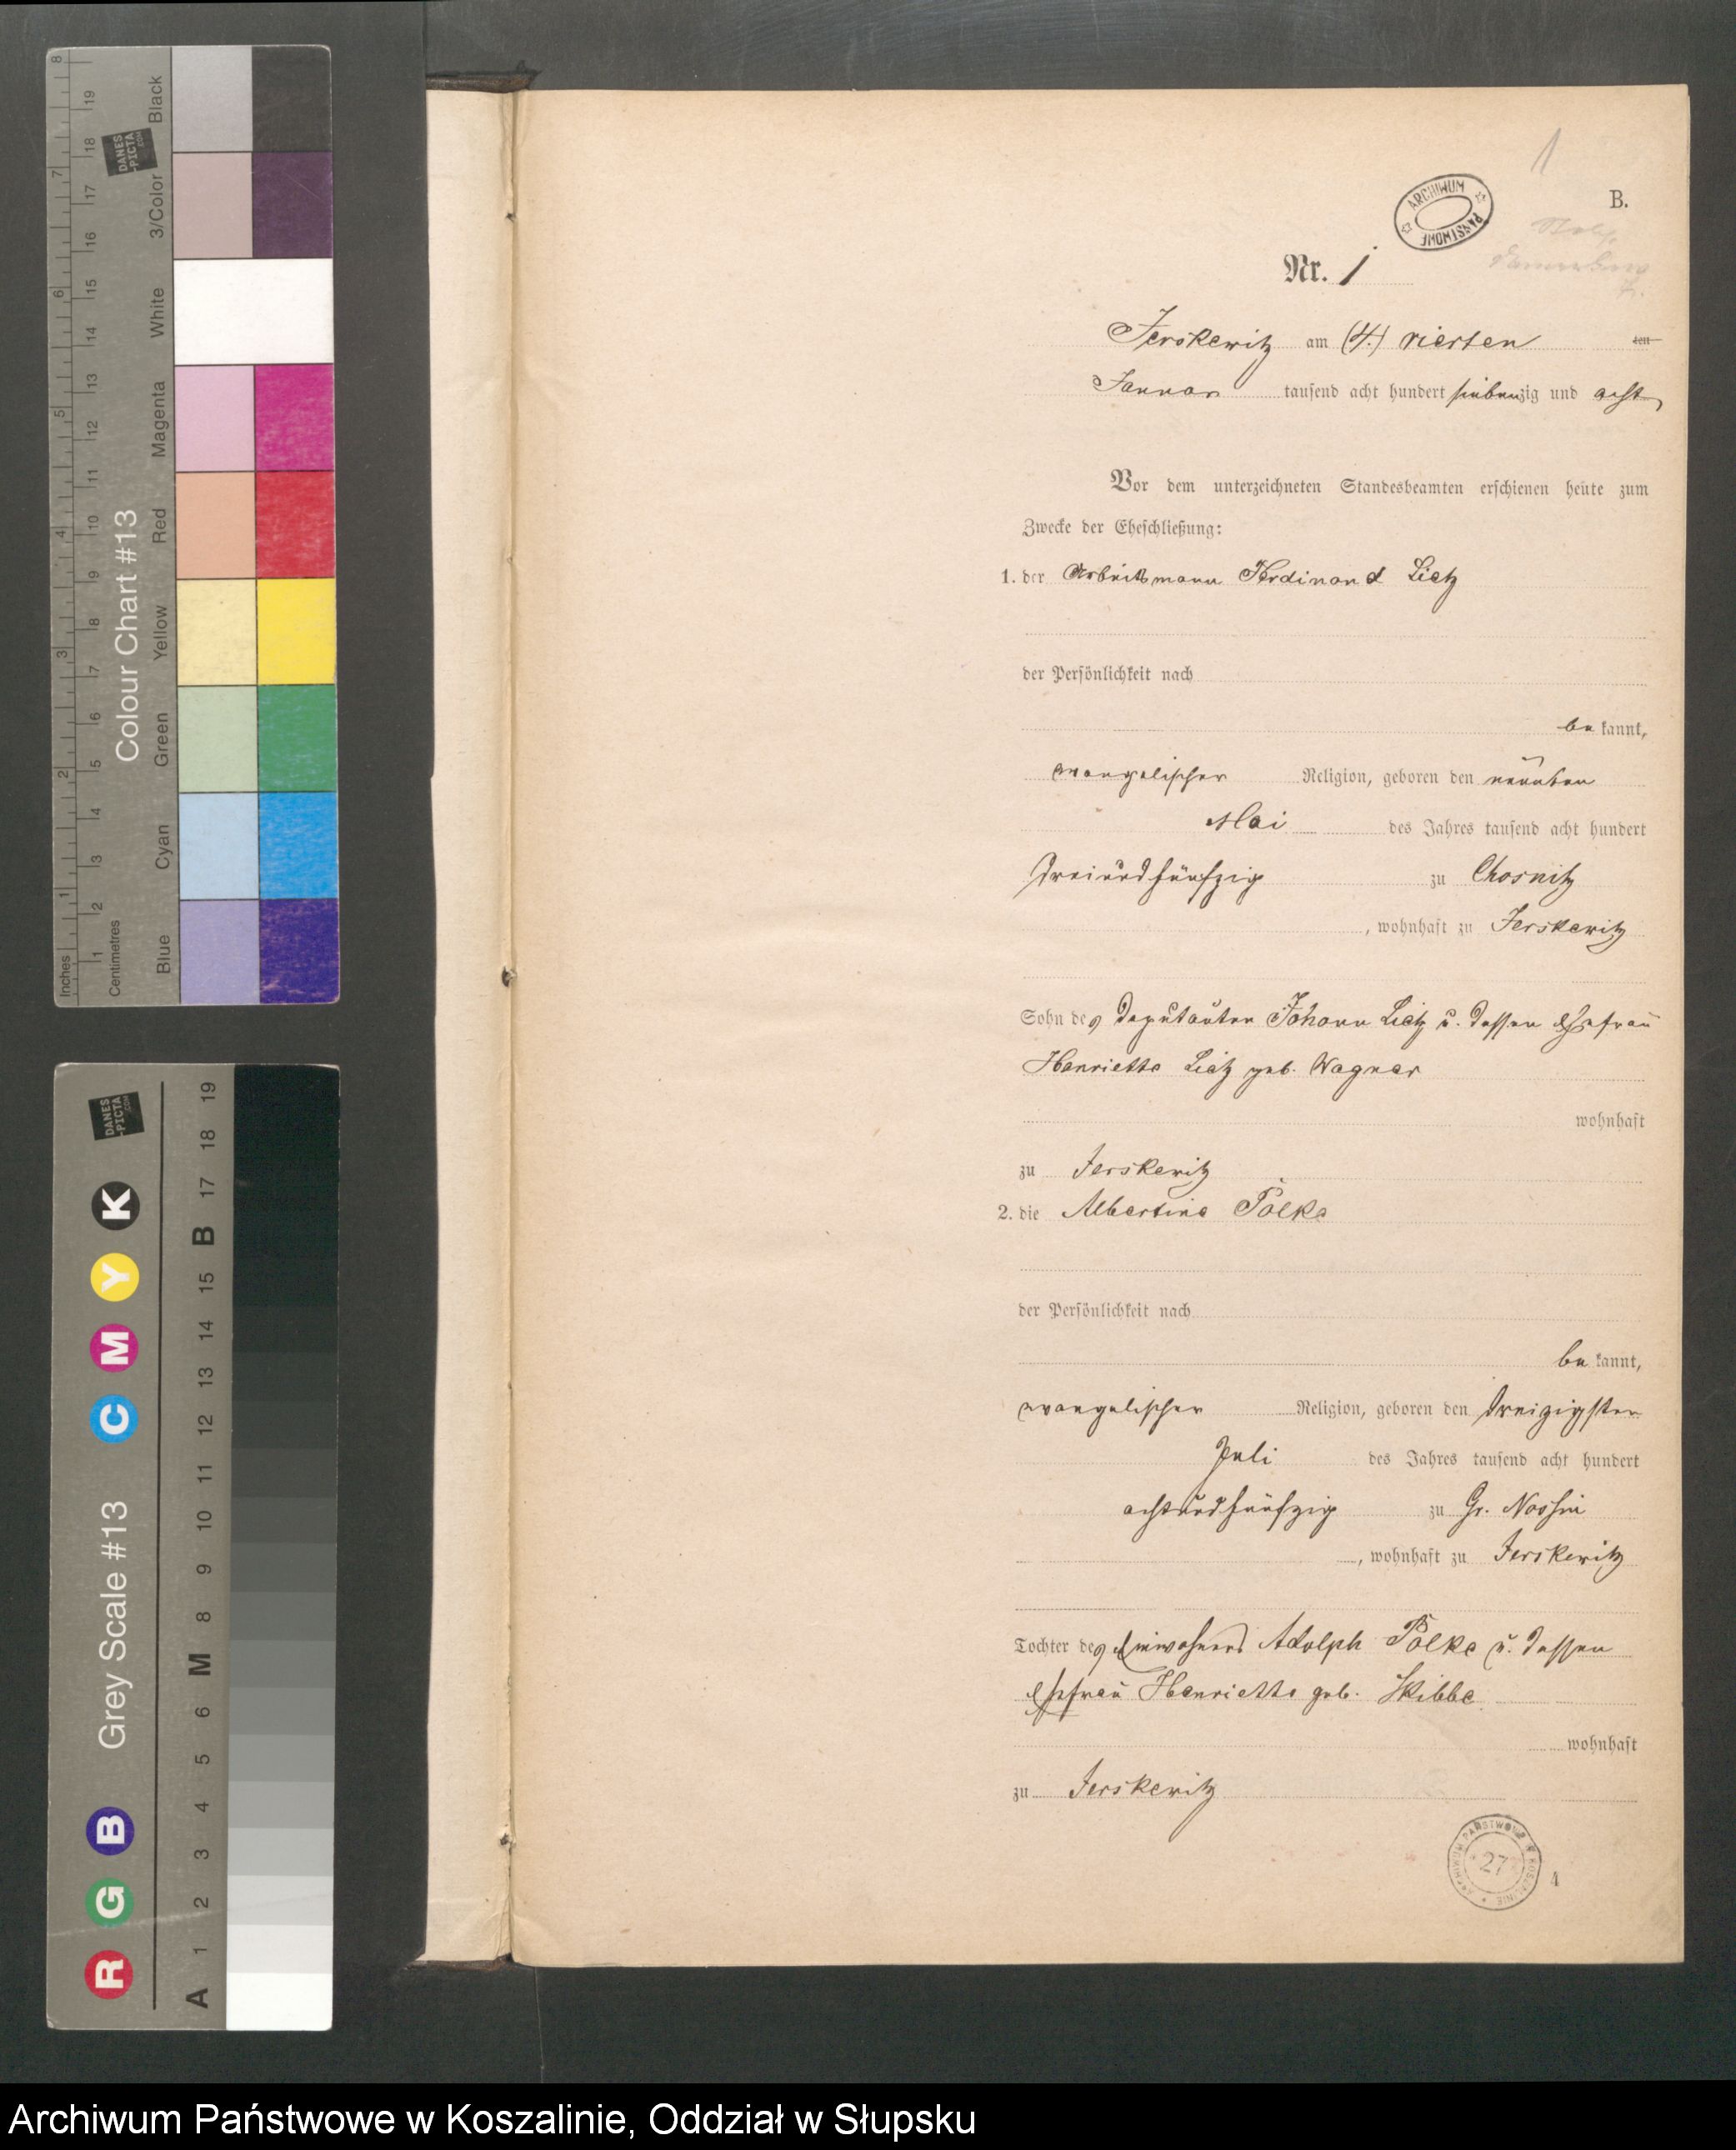 1
B.
ARCHIWUM PAŃSTWOWE
Nr. 1
Jerskewitz am (4.) vierten ten
Januar tausend acht hundert siebenzig und acht
Vor dem unterzeichneten Standesbeamten erschienen heute zum
Zwecke der Eheschließung:
1. der Arbeitsmann Ferdinand Lietz
der Persönlichkeit nach
be kannt,
evangelischer Religion, geboren den neunten
Mai des Jahres tausend acht hundert
dreiundfünfzig zu Chosnitz
, wohnhaft zu Jerskewitz
Sohn des Deputanten Johann Lietz u. dessen Ehefrau
Henriette Lietz geb. Wagner
wohnhaft
zu Jerskewitz
2. die Albertine Pölke
der Persönlichkeit nach
be kannt,
evangelischer Religion, geboren den dreizigsten
Juli des Jahres tausend acht hundert
achtundfünfzig zu Gr. Nossin
, wohnhaft zu Jerskewitz
Tochter des Einwohners Adolph Pölke u. dessen
Ehefrau Henriette geb. Skibbe
wohnhaft
zu Jerskewitz
27
Inches
1 2 3 4 5 6 7 8
Centimetres
1 2 3 4 5 6 7 8 9 10 11 12 13 14 15 16 17 18 19
Colour Chart #13
Blue Cyan Green Yellow Red Magenta White 3/Color Black
DANES
-PICTA
.COM
Grey Scale #13
R G B C M Y K
A 1 2 3 4 5 6 M 8 9 10 11 12 13 14 15 B 17 18 19
DANES
-PICTA
.COM
Archiwum Państwowe w Koszalinie, Oddział w Słupsku